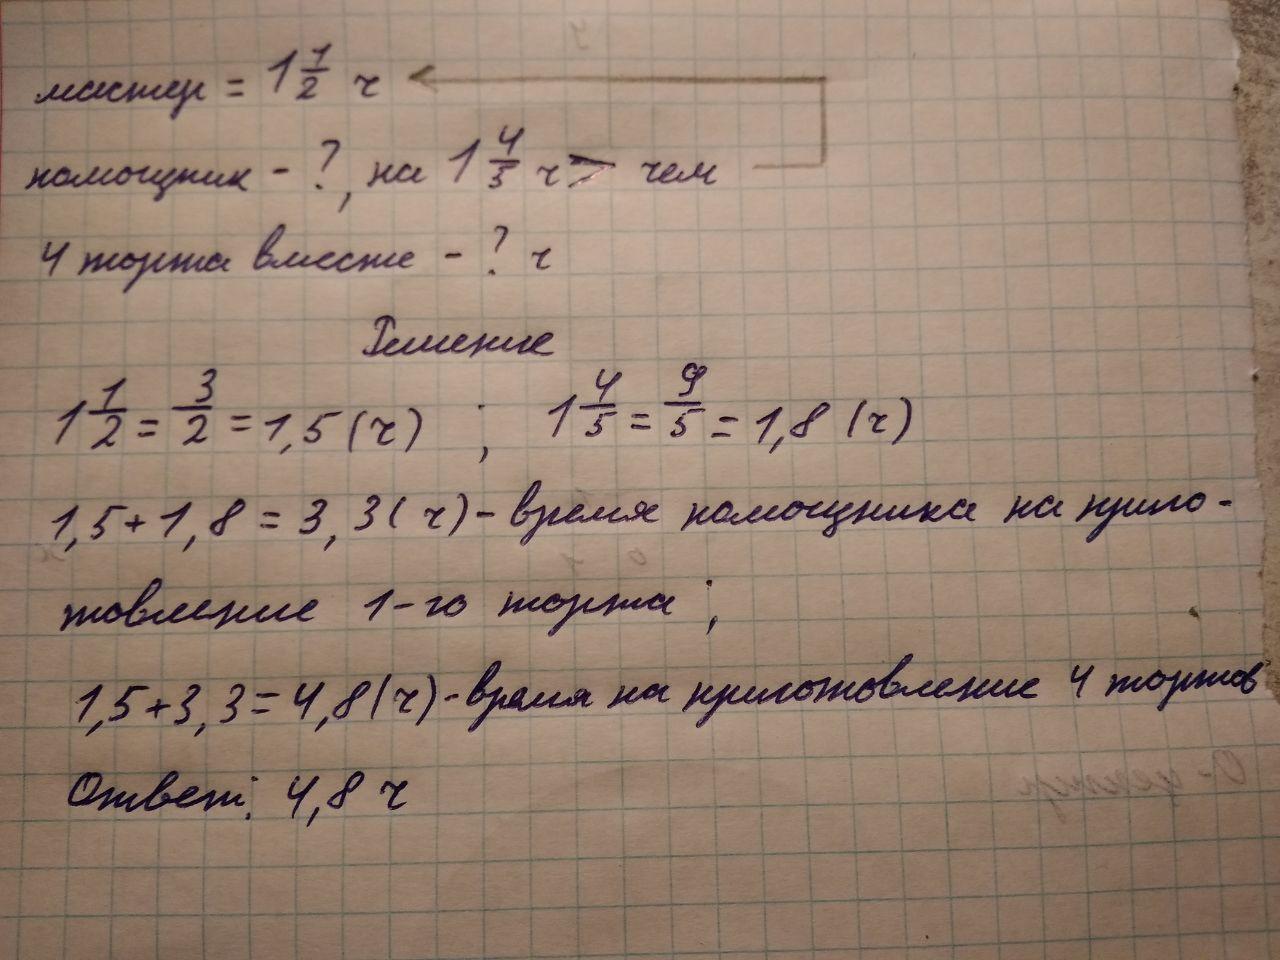 мастер = 1 1/2 ч
помощник - ?, на 1 4/5 ч > чем
4 торта вместе - ? ч
Решение
1 1/2 = 3/2 = 1,5 (ч) ; 1 4/5 = 9/5 = 1,8 (ч)
1,5 + 1,8 = 3,3 (ч) - время помощника на приго-
товление 1-го торта;
1,5 + 3,3 = 4,8 (ч) - время на приготовление 4 тортов
Ответ: 4,8 ч